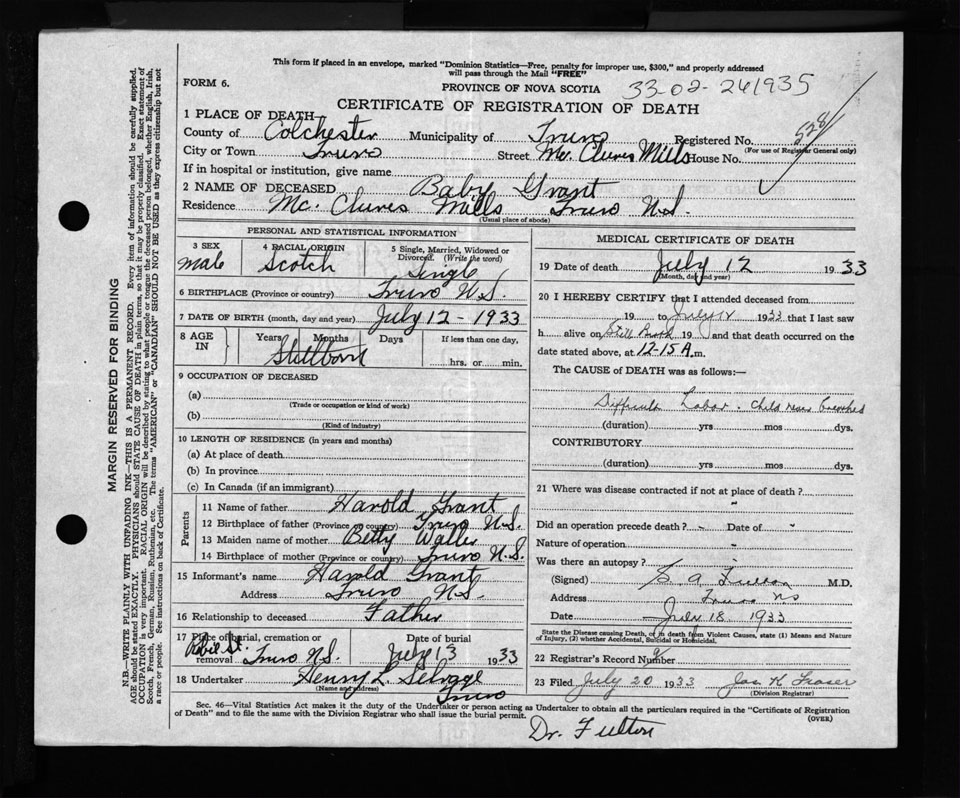 This form if placed in an envelope, marked "Dominion Statistics—Free, penalty for improper use, $300," and properly addressed
will pass through the Mail "FREE"
FORM 6.
PROVINCE OF NOVA SCOTIA
33-02-261935
CERTIFICATE OF REGISTRATION OF DEATH
1 PLACE OF DEATH—
County of Colchester Municipality of Truro Registered No. 528
(For use of Registrar General only)
City or Town Truro Street Mc. Clures Mills House No.
If in hospital or institution, give name
2 NAME OF DECEASED Baby Grant
Residence Mc. Clures Mills Truro N.S.
(Usual place of abode)
PERSONAL AND STATISTICAL INFORMATION
3 SEX 4 RACIAL ORIGIN 5 Single, Married, Widowed or
Divorced. (Write the word)
male Scotch Single
6 BIRTHPLACE (Province or country) Truro N.S.
7 DATE OF BIRTH (month, day and year) July 12 - 1933
8 AGE IN Years Months Days If less than one day,
Stillborn hrs. or min.
9 OCCUPATION OF DECEASED
(a)
(Trade or occupation or kind of work)
(b)
(Kind of industry)
10 LENGTH OF RESIDENCE (in years and months)
(a) At place of death
(b) In province
(c) In Canada (if an immigrant)
Parents
11 Name of father Harold Grant
12 Birthplace of father (Province or country) Truro N.S.
13 Maiden name of mother Betty
14 Birthplace of mother (Province or country) Truro N.S.
15 Informant's name Harold Grant
Address Truro N.S.
16 Relationship to deceased Father
17 Place of burial, cremation or Date of burial
removal Robie St. Truro N.S. July 13 1933
18 Undertaker Henry L. Selvage
(Name and address) Truro
MEDICAL CERTIFICATE OF DEATH
19 Date of death July 12 1933
(Month, day and year)
20 I HEREBY CERTIFY that I attended deceased from
19 to July 12 1933 that I last saw
h alive on Still Birth 19 and that death occurred on the
date stated above, at 12-15 A.m.
The CAUSE of DEATH was as follows:—
Difficult Labor. Child was
(duration) yrs mos dys.
CONTRIBUTORY
(duration) yrs mos dys.
21 Where was disease contracted if not at place of death?
Did an operation precede death? - Date of
Nature of operation
Was there an autopsy?
(Signed) S. A. Fulton M.D.
Address Truro NS
Date July 18 1933
State the Disease causing Death, or in death from Violent Causes, state (1) Means and Nature
of Injury, (2) whether Accidental, Suicidal or Homicidal.
22 Registrar's Record Number
23 Filed July 20 1933 Jas. K. Fraser
(Division Registrar)
Sec. 46—Vital Statistics Act makes it the duty of the Undertaker or person acting as Undertaker to obtain all the particulars required in the "Certificate of Registration
of Death" and to file the same with the Division Registrar who shall issue the burial permit. (OVER)
Dr. Fulton
MARGIN RESERVED FOR BINDING
N.B.—WRITE PLAINLY WITH UNFADING INK—THIS IS A PERMANENT RECORD. Every item of information should be carefully supplied.
AGE should be stated EXACTLY. PHYSICIANS should STATE CAUSE OF DEATH in plain terms, so that it may be properly classified. Exact statement of
OCCUPATION is very important. RACIAL ORIGIN will be described by stating to what people or tongue the deceased person belonged, whether English, Irish,
Scotch, French, German, Russian, Ruthenian, etc. The terms "AMERICAN" or "CANADIAN" SHOULD NOT BE USED as they express citizenship but not
a race or people. See instructions on back of Certificate.